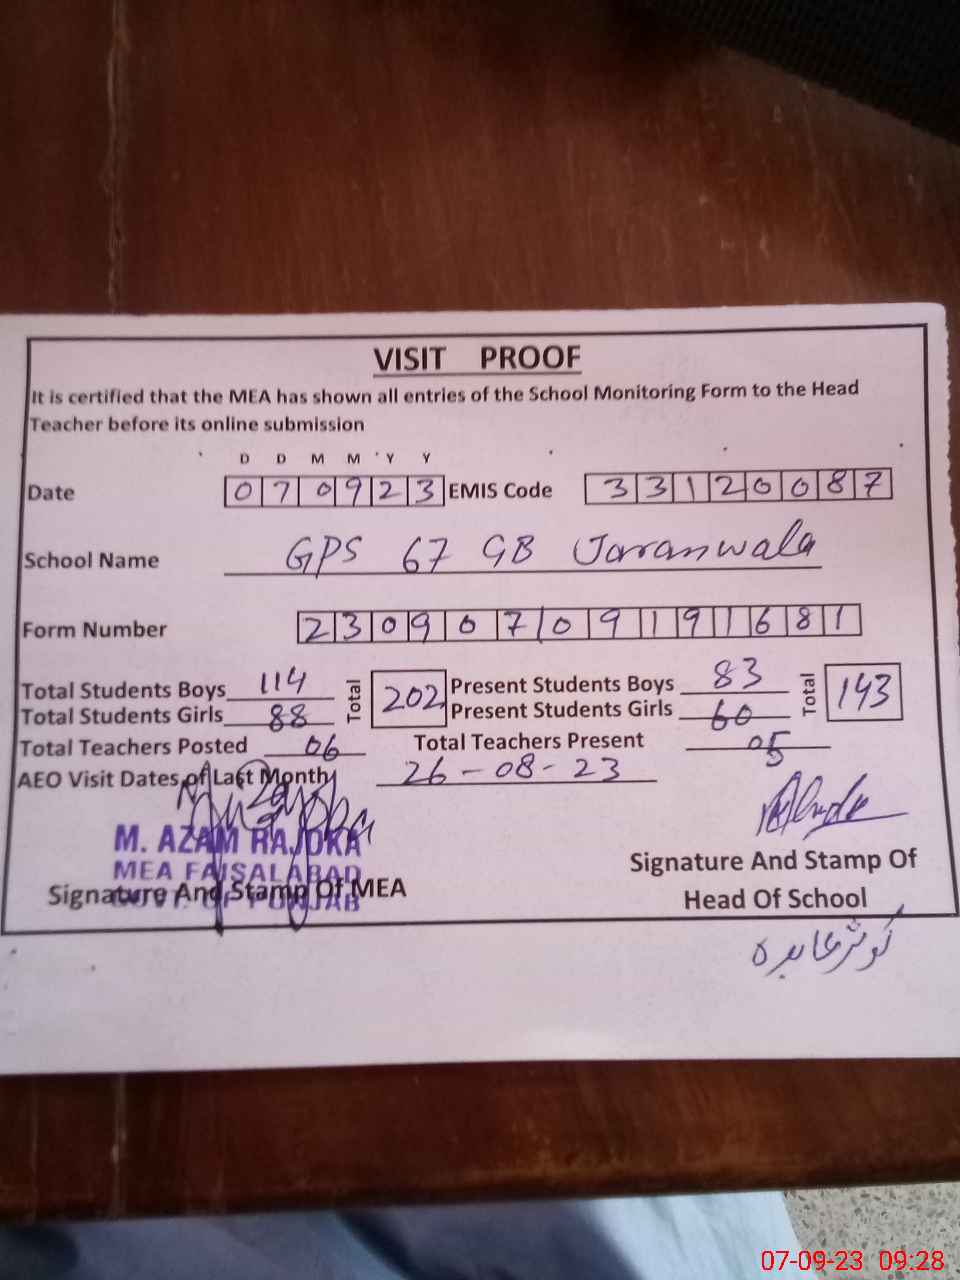 VISIT PROOF
It is certified that the MEA has shown all entries of the School Monitoring Form to the Head
Teacher before its online submission
D D M M Y Y
Date 070923 EMIS Code 33120087
School Name GPS 67 GB Jaranwala
Form Number 23090709191681
Total Students Boys 114 Total 202 Present Students Boys 83 Total 143
Total Students Girls 88 Present Students Girls 60
Total Teachers Posted 06 Total Teachers Present 05
AEO Visit Dates of Last Month 26-08-23
M. AZAM RAJOKA
MEA FAISALABAD
GOVT. OF PUNJAB
Signature And Stamp Of MEA
Signature And Stamp Of
Head Of School
کوثر عابدہ
07-09-23 09:28